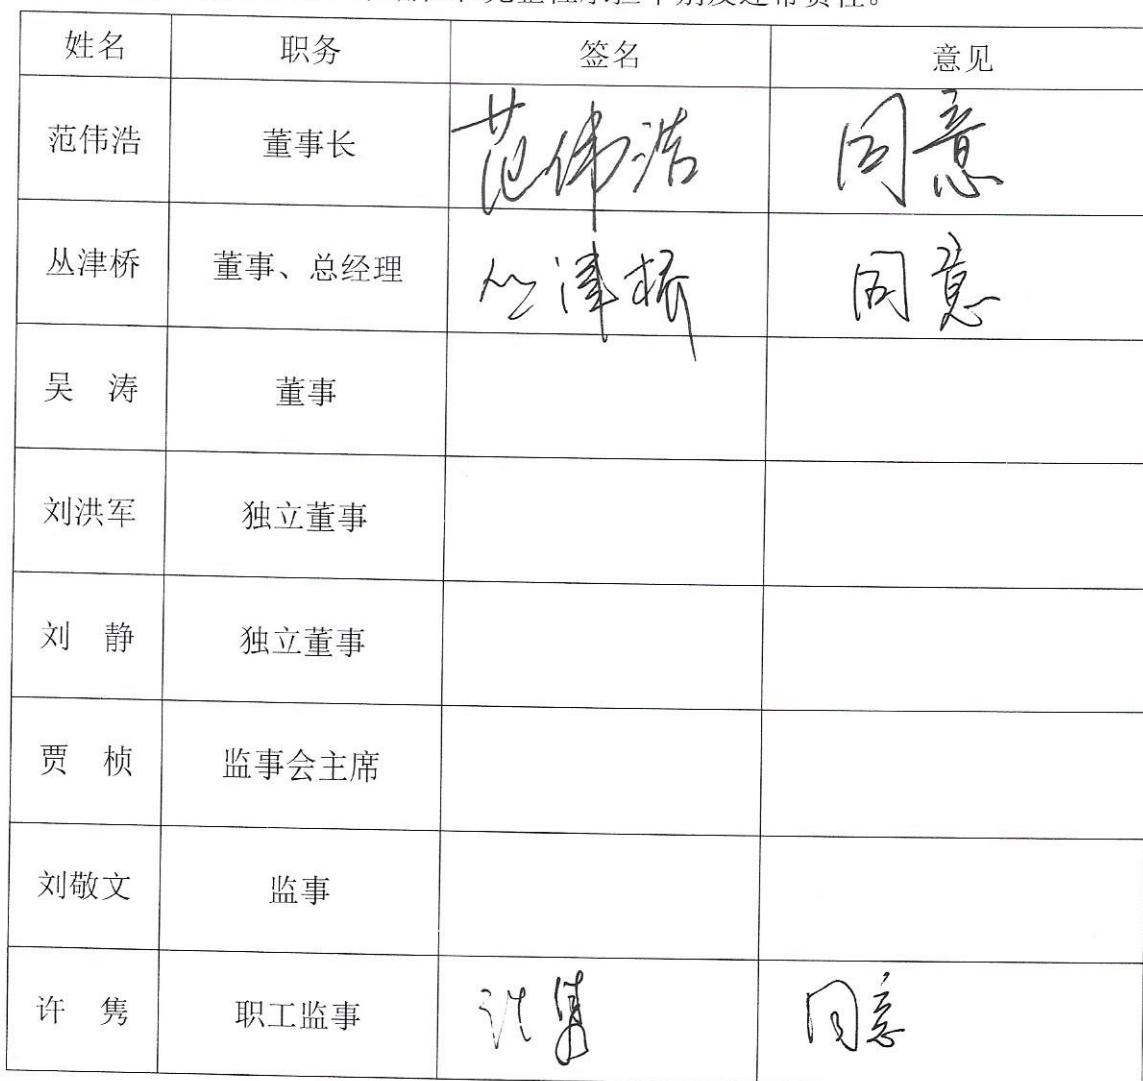 完整性承担个别及连带责任。
姓名 职务 签名 意见
范伟浩 董事长 范伟浩 同意
丛津桥 董事、总经理 丛津桥 同意
吴 涛 董事
刘洪军 独立董事
刘 静 独立董事
贾 桢 监事会主席
刘敬文 监事
许 隽 职工监事 许隽 同意